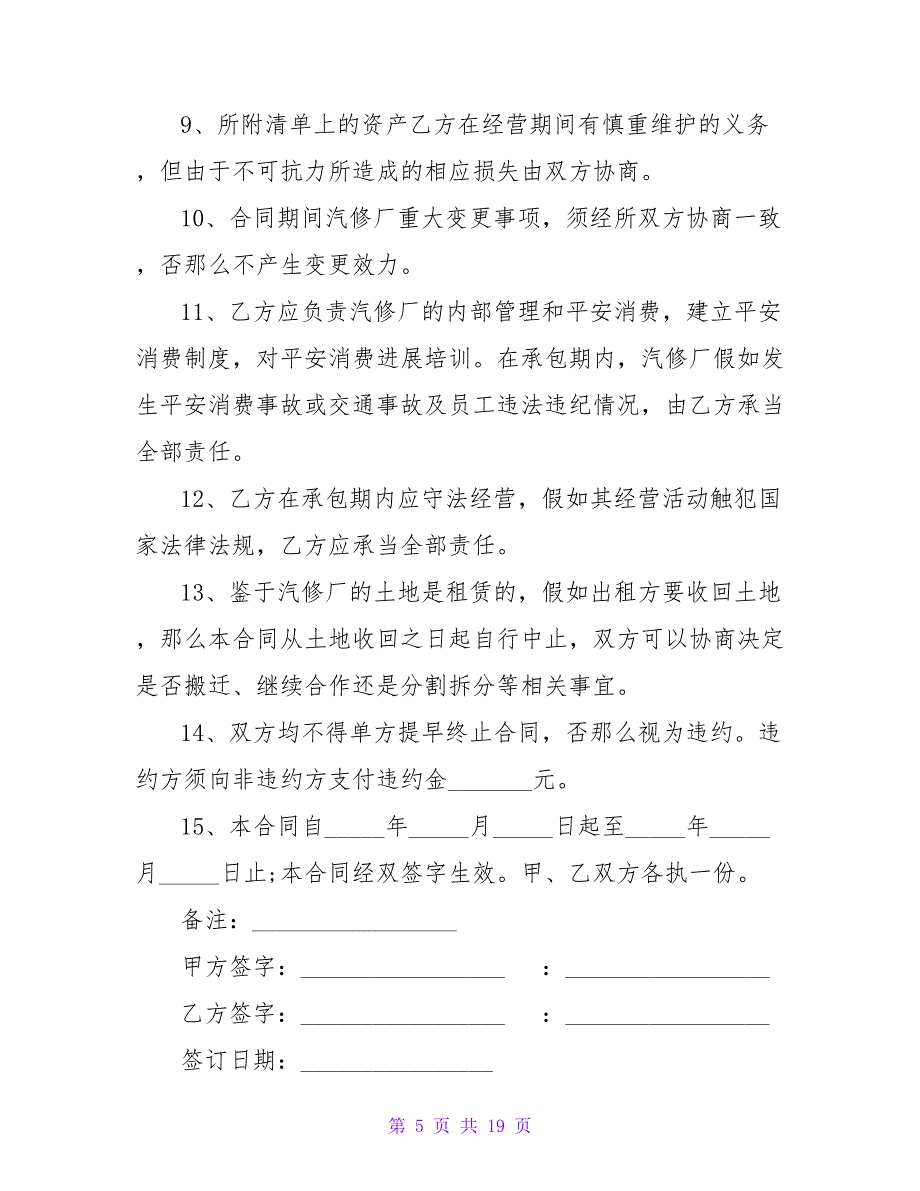 9、所附清单上的资产乙方在经营期间有慎重维护的义务
，但由于不可抗力所造成的相应损失由双方协商。
10、合同期间汽修厂重大变更事项，须经所双方协商一致
，否那么不产生变更效力。
11、乙方应负责汽修厂的内部管理和平安消费，建立平安
消费制度，对平安消费进展培训。在承包期内，汽修厂假如发
生平安消费事故或交通事故及员工违法违纪情况，由乙方承当
全部责任。
12、乙方在承包期内应守法经营，假如其经营活动触犯国
家法律法规，乙方应承当全部责任。
13、鉴于汽修厂的土地是租赁的，假如出租方要收回土地
，那么本合同从土地收回之日起自行中止，双方可以协商决定
是否搬迁、继续合作还是分割拆分等相关事宜。
14、双方均不得单方提早终止合同，否那么视为违约。违
约方须向非违约方支付违约金_______元。
15、本合同自_____年_____月_____日起至_____年_____
月_____日止;本合同经双签字生效。甲、乙双方各执一份。
备注：_________________
甲方签字：_________________ ：_________________
乙方签字：_________________ ：_________________
签订日期：________________
第 5 页 共 19 页